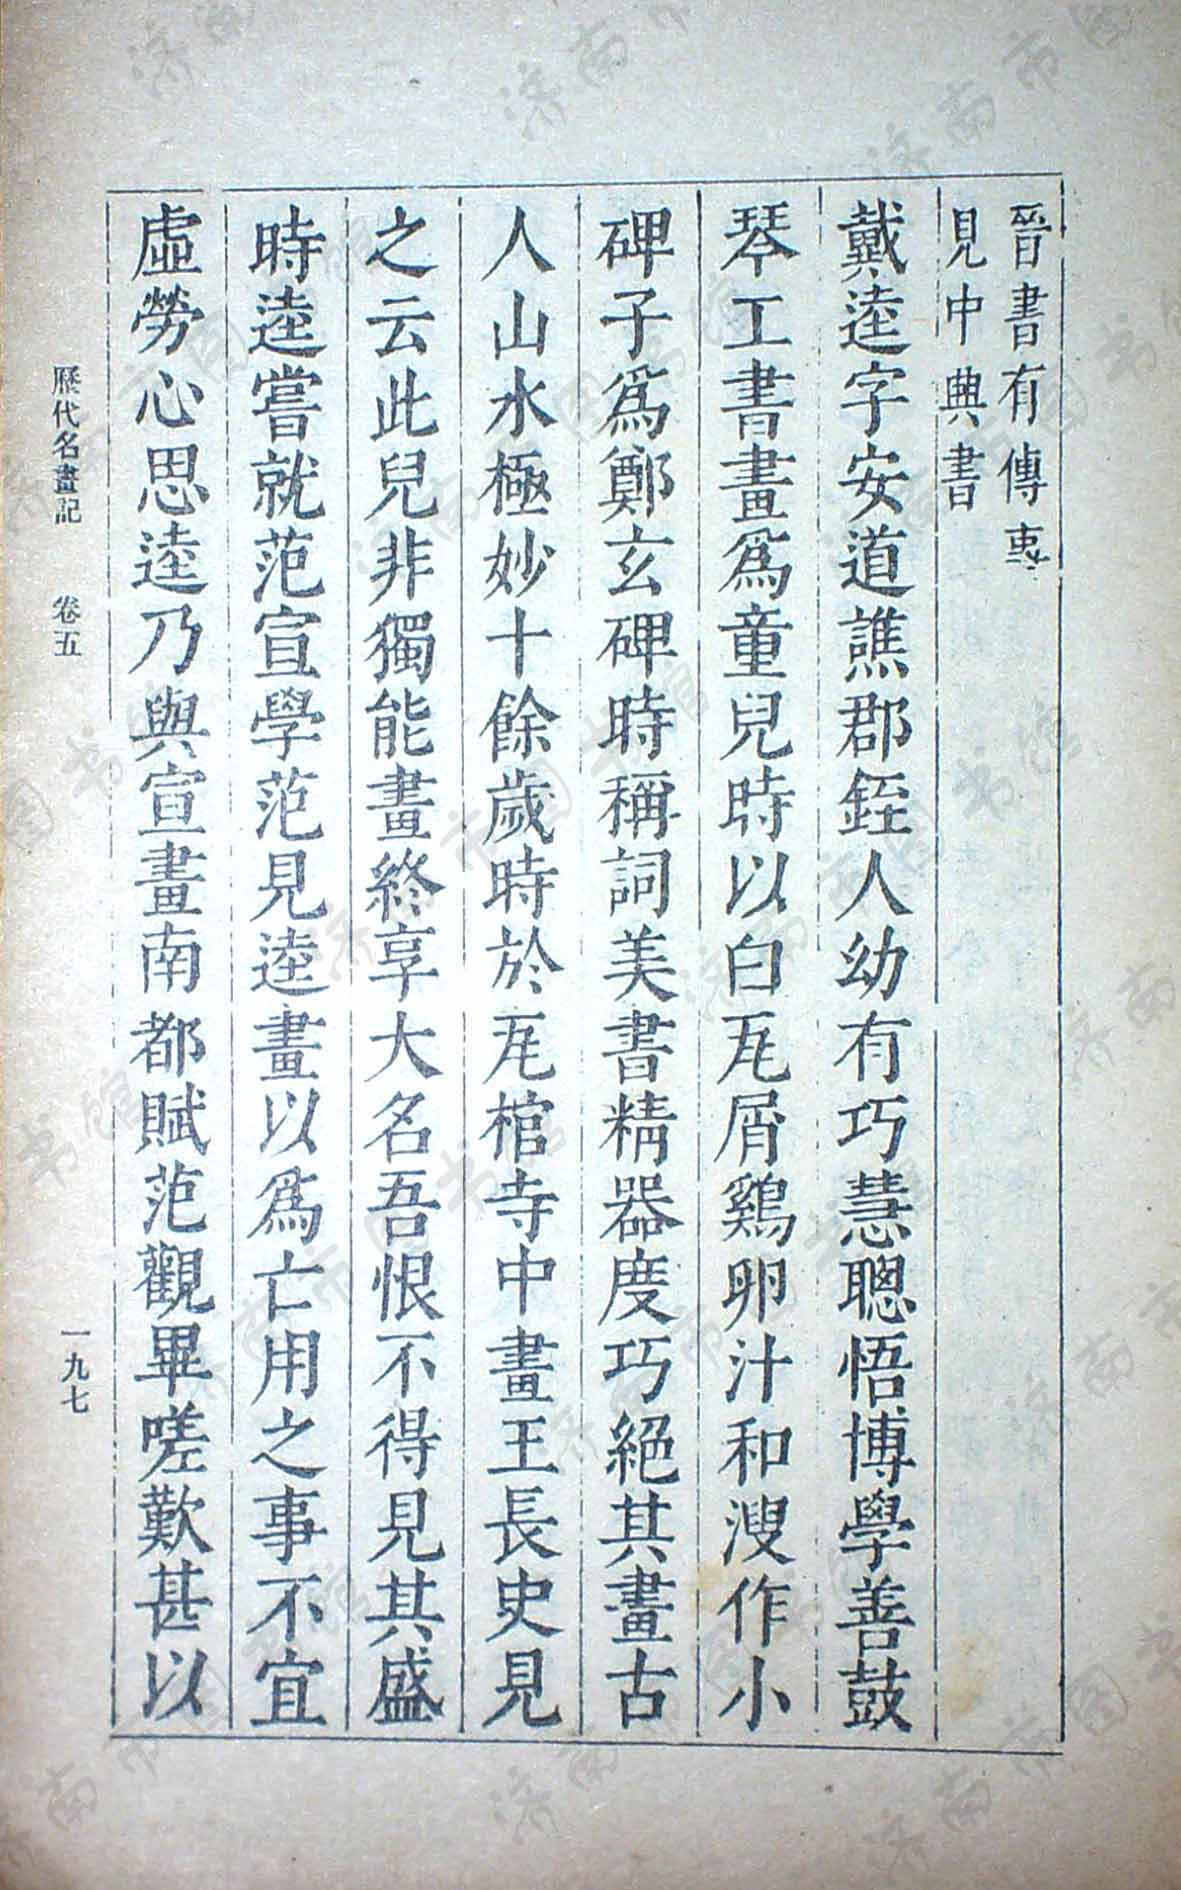 晉書有傳事
見中興書
戴逵字安道譙郡銍人幼有巧慧聰悟博學善鼓
琴工書畫爲童兒時以白瓦屑鷄卵汁和溲作小
碑子爲鄭玄碑時稱詞美書精器度巧絕其畫古
人山水極妙十餘歲時於瓦棺寺中畫王長史見
之云此兒非獨能畫終享大名吾恨不得見其盛
時逵嘗就范宣學范見逵畫以爲亡用之事不宜
虛勞心思逵乃與宣畫南都賦范觀畢嗟歎甚以
歷代名畫記 卷五 一九七
济南市图书馆